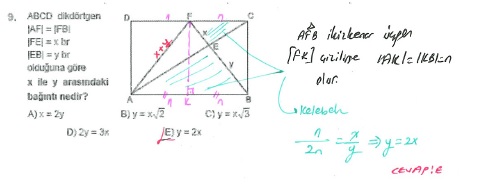 9. ABCD dikdörtgen
|AF| = |FB|
|FE| = x br
|EB| = y br
olduğuna göre
x ile y arasındaki
bağıntı nedir?
A) x = 2y B) y = x√2 C) y = x√3
D) 2y = 3x E) y = 2x
D n F n C
x
E
x+y
y
A n K n B
AFB ikizkenar üçgen
[FK] çizilirse |AK|=|KB|=n
olur.
Kelebek
n/2n = x/y ⇒ y=2x
CEVAP:E